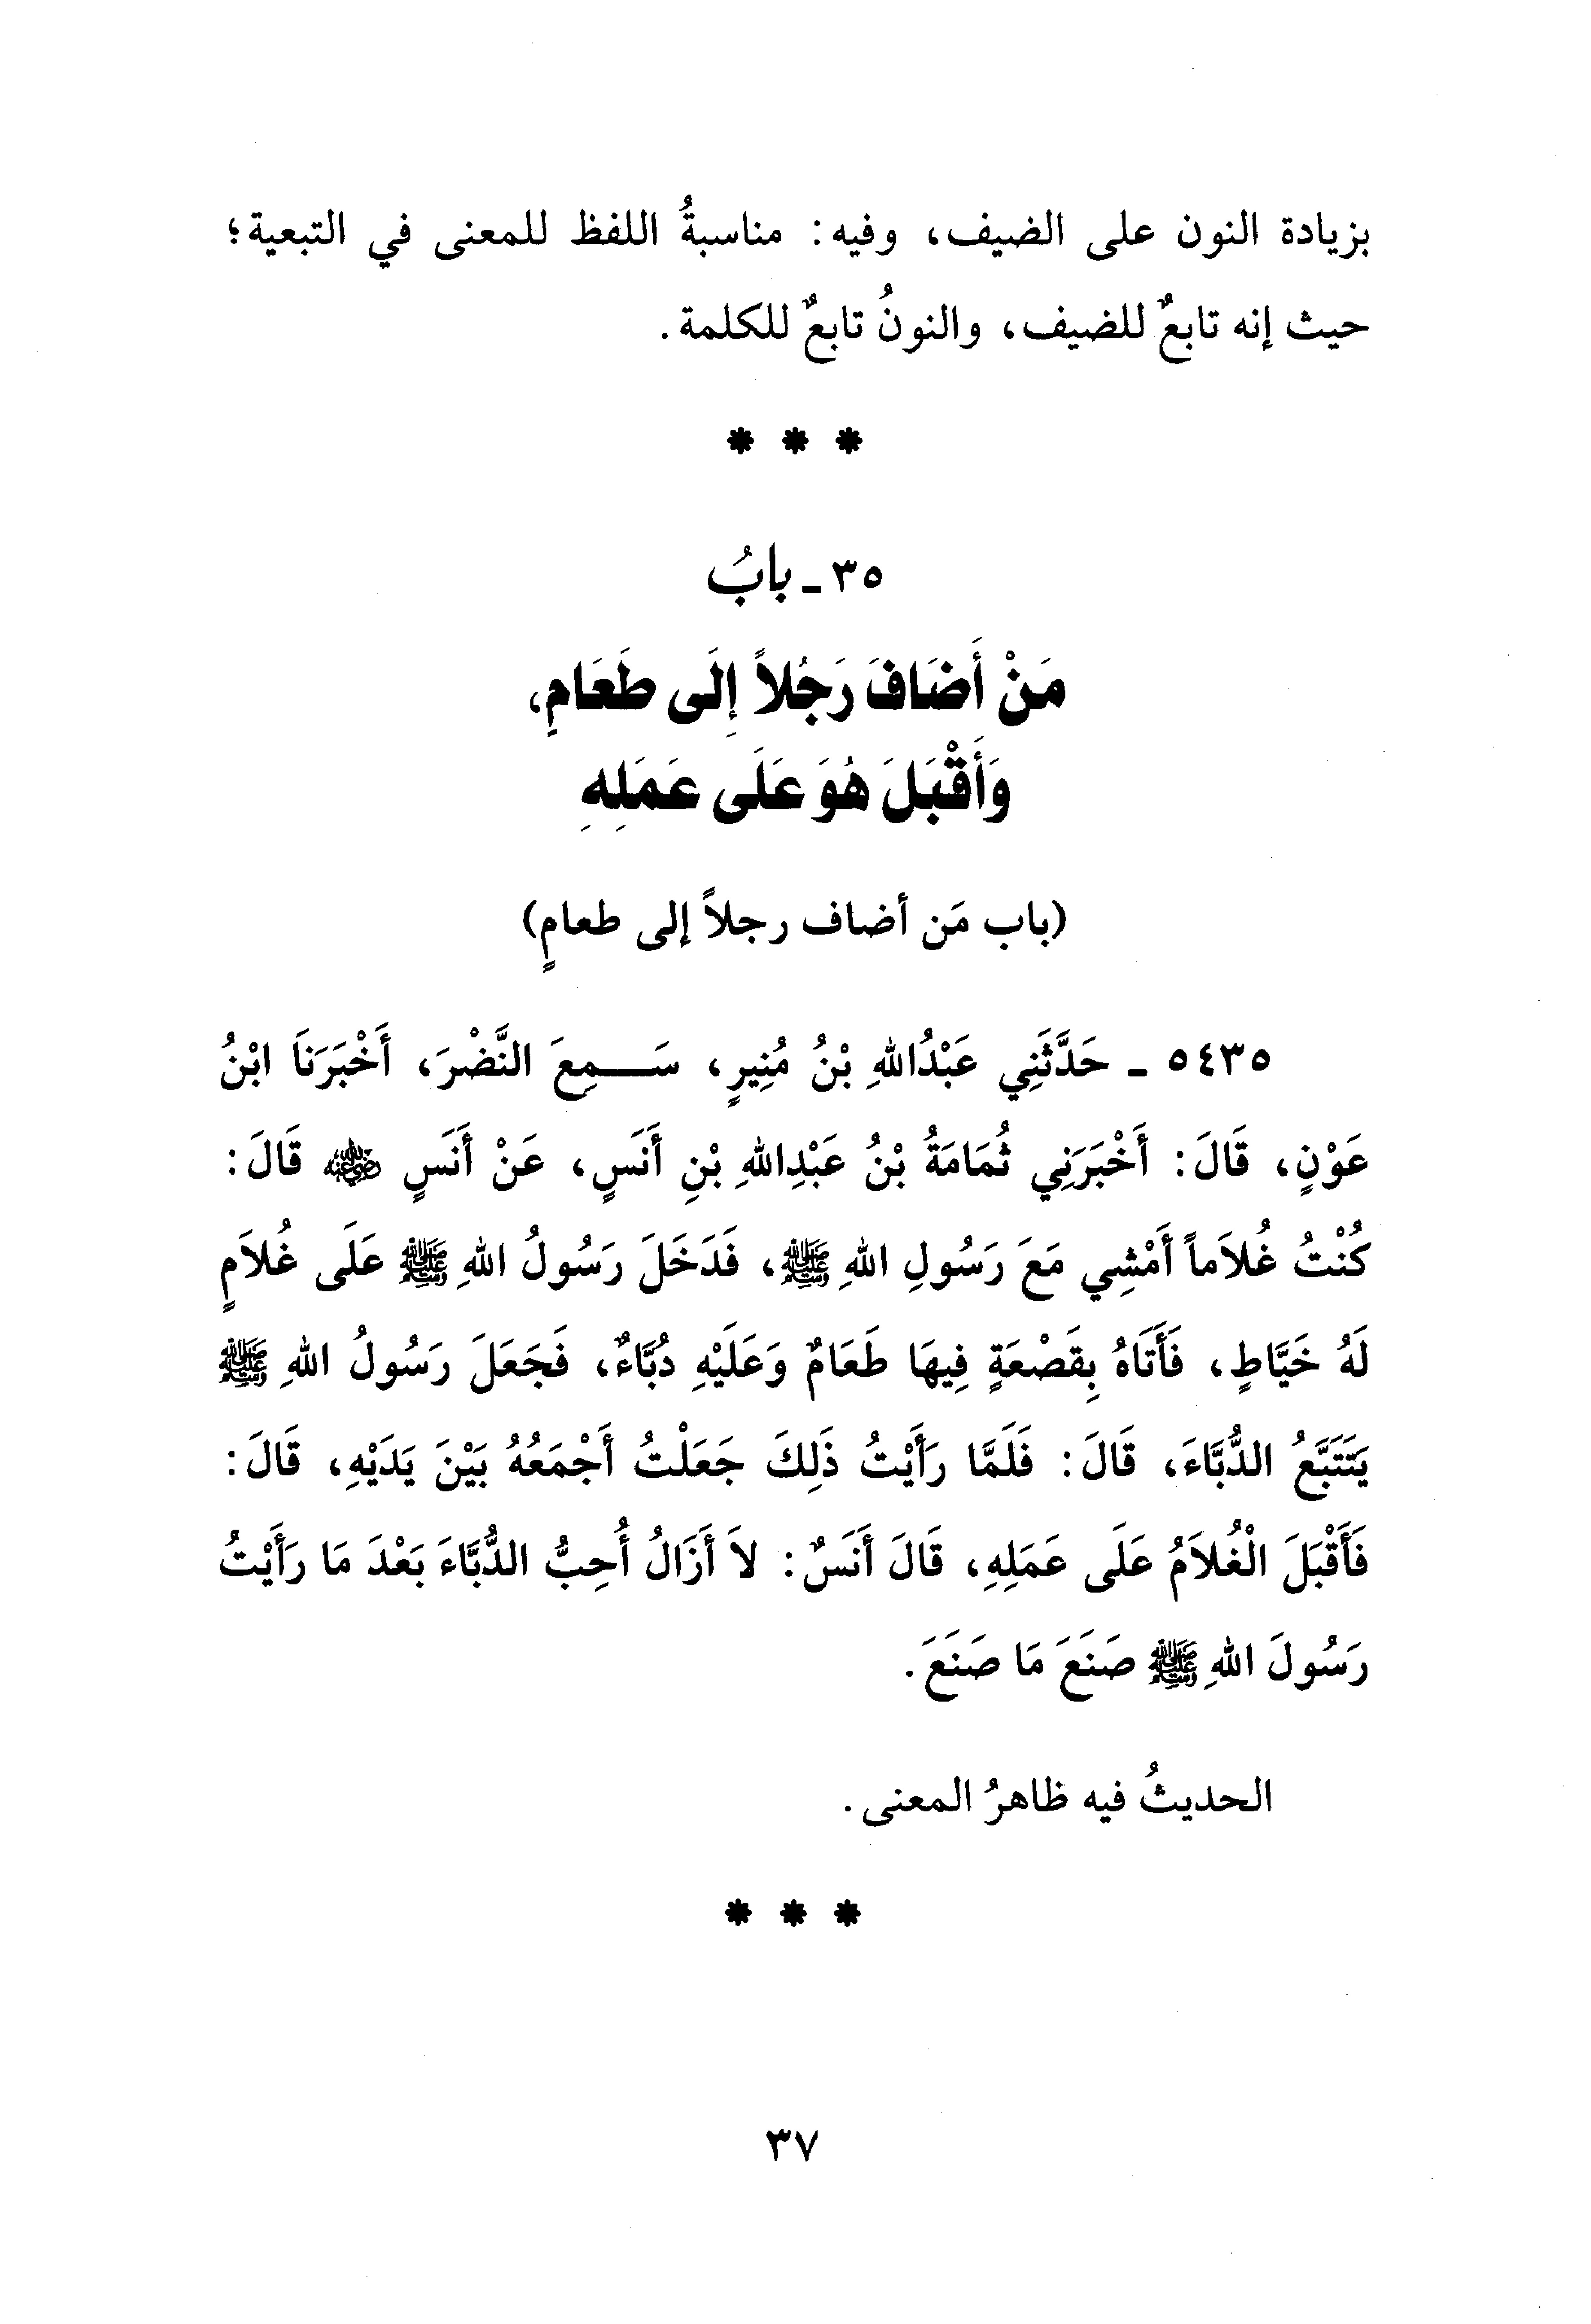 بزيادة النون على الضيف، وفيه: مناسبةُ اللفظ للمعنى في التبعية؛
حيث إنه تابعٌ للضيف، والنونُ تابعٌ للكلمة.
* * *
٣٥ - بابُ
مَنْ أَضَافَ رَجُلاً إِلَى طَعَامٍ،
وَأَقْبَلَ هُوَ عَلَى عَمَلِهِ
(باب مَن أضاف رجلاً إلى طعامٍ)
٥٤٣٥ - حَدَّثَنِي عَبْدُاللهِ بْنُ مُنِيرٍ، سَـــمِعَ النَّضْرَ، أَخْبَرَناَ ابْنُ
عَوْنٍ، قَالَ: أَخْبَرَنِي ثُمَامَةُ بْنُ عَبْدِاللهِ بْنِ أَنَسٍ، عَنْ أَنَسٍ رضي الله عنه قَالَ:
كُنْتُ غُلاَماً أَمْشِي مَعَ رَسُولِ اللهِ ﷺ، فَدَخَلَ رَسُولُ اللهِ ﷺ عَلَى غُلاَمٍ
لَهُ خَيَّاطٍ، فَأَتَاهُ بِقَصْعَةٍ فِيهَا طَعَامٌ وَعَلَيْهِ دُبَّاءٌ، فَجَعَلَ رَسُولُ اللهِ ﷺ
يَتَتَبَّعُ الدُّبَّاءَ، قَالَ: فَلَمَّا رَأَيْتُ ذَلِكَ جَعَلْتُ أَجْمَعُهُ بَيْنَ يَدَيْهِ، قَالَ:
فَأَقْبَلَ الْغُلاَمُ عَلَى عَمَلِهِ، قَالَ أَنَسٌ: لاَ أَزَالُ أُحِبُّ الدُّبَّاءَ بَعْدَ مَا رَأَيْتُ
رَسُولَ اللهِ ﷺ صَنَعَ مَا صَنَعَ.
الحديثُ فيه ظاهرُ المعنى.
* * *
٣٧